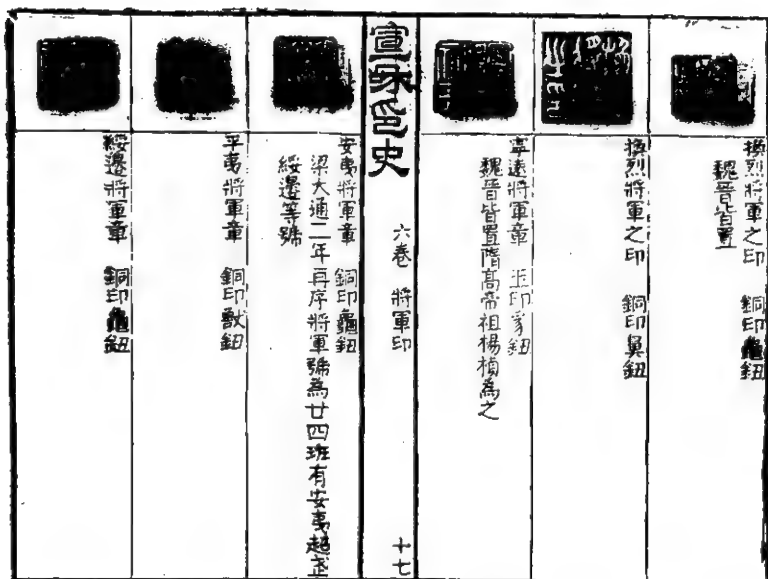 揚烈將軍之印 銅印龜鈕
魏晉皆置
揚烈將軍之印 銅印鼻鈕
寧遠將軍章 玉印豸鈕
魏晉皆置隋高帝祖楊禎為之
宣和印史
六卷 將軍印
十七
安夷將軍章 銅印龜鈕
梁大通二年再序將軍號為廿四班有安夷超
綏邊等號
平夷將軍章 銅印獸鈕
綏邊將軍章 銅印龜鈕